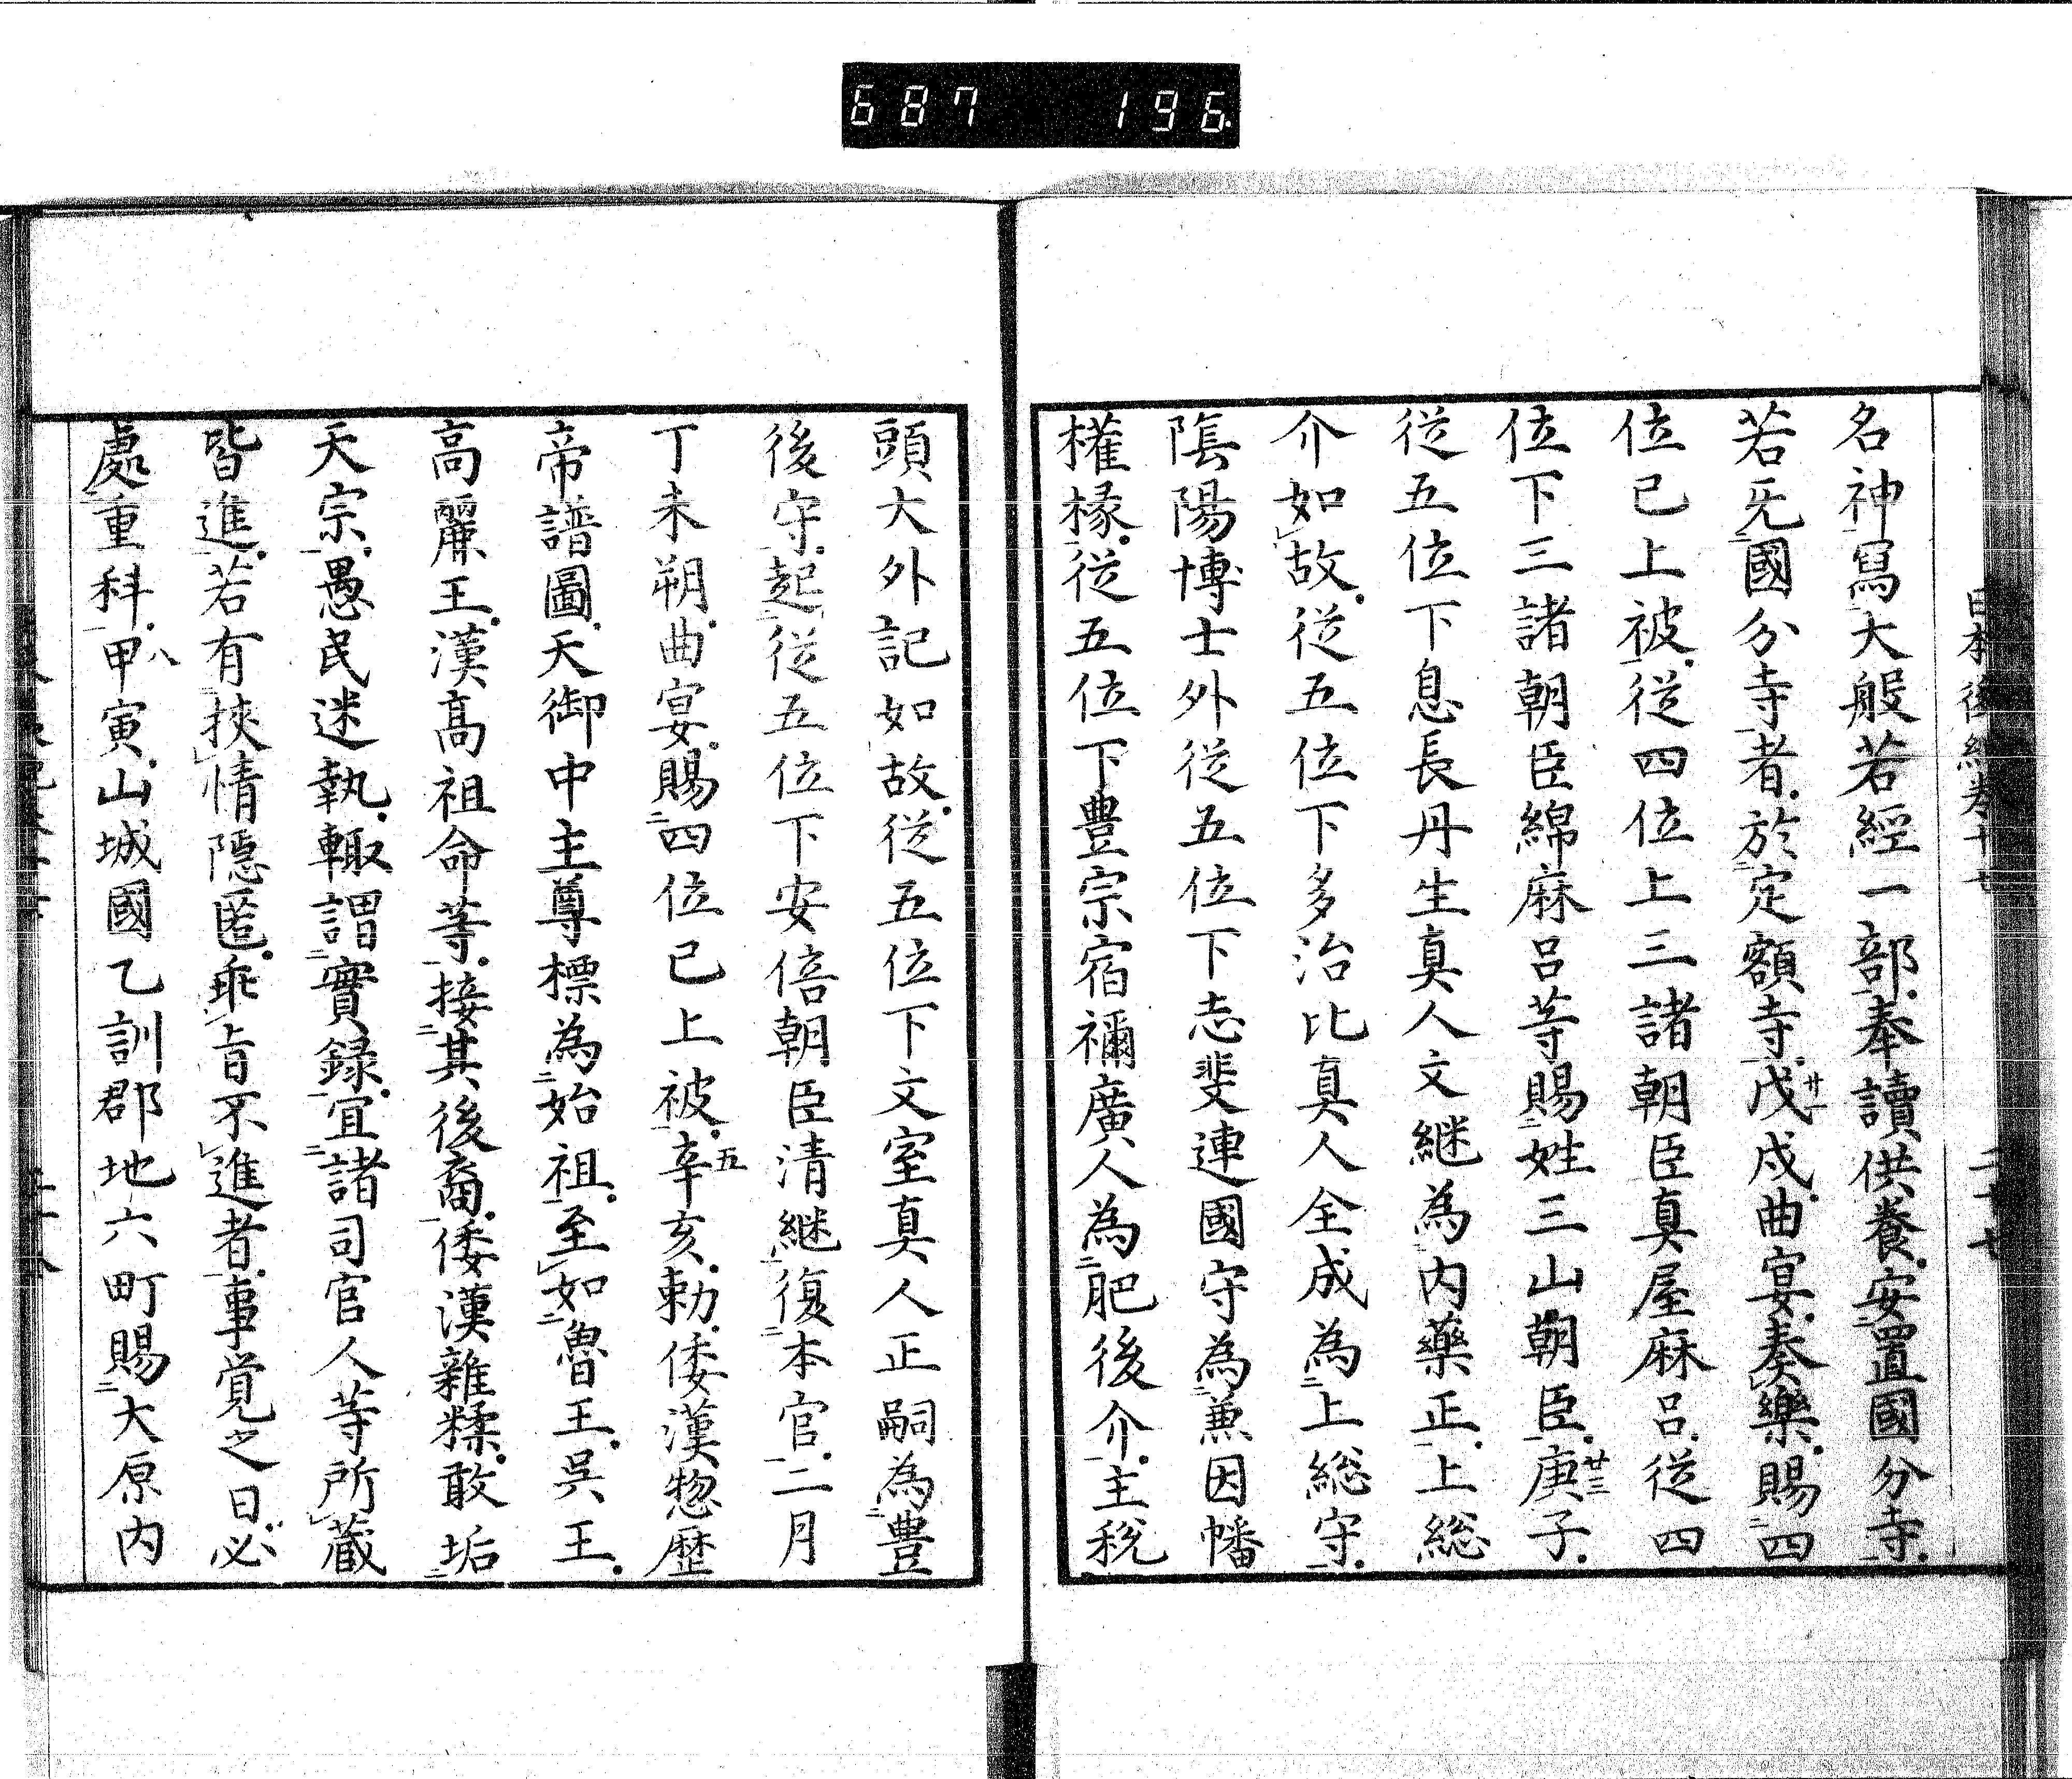 687 196
日本後紀卷十七
二十七
名神寫大般若經一部奉讀供養安置國分寺
若无國分寺者於定額寺戊戌曲宴奏樂賜四
廿一
位已上被從四位上三諸朝臣真屋麻呂從四
位下三諸朝臣綿麻呂等賜姓三山朝臣庚子
廿三
從五位下息長丹生真人文継為内藥正上総
介如故從五位下多治比真人全成為上総守
陰陽博士外從五位下志斐連國守為兼因幡
權掾從五位下豊宗宿禰廣人為肥後介主税
頭大外記如故從五位下文室真人正嗣為豊
後守起從五位下安倍朝臣清継復本官二月
丁未朔曲宴賜四位已上被辛亥勅倭漢惣歴
五
帝譜圖天御中主尊標為始祖至如魯王吳王
高麗王漢高祖命等接其後裔倭漢雜糅敢垢
天宗愚民迷執輙謂實録宜諸司官人等所蔵
皆進若有挾情隱匿乖旨不進者事覚之日必
處重科甲寅山城國乙訓郡地六町賜大原内
八